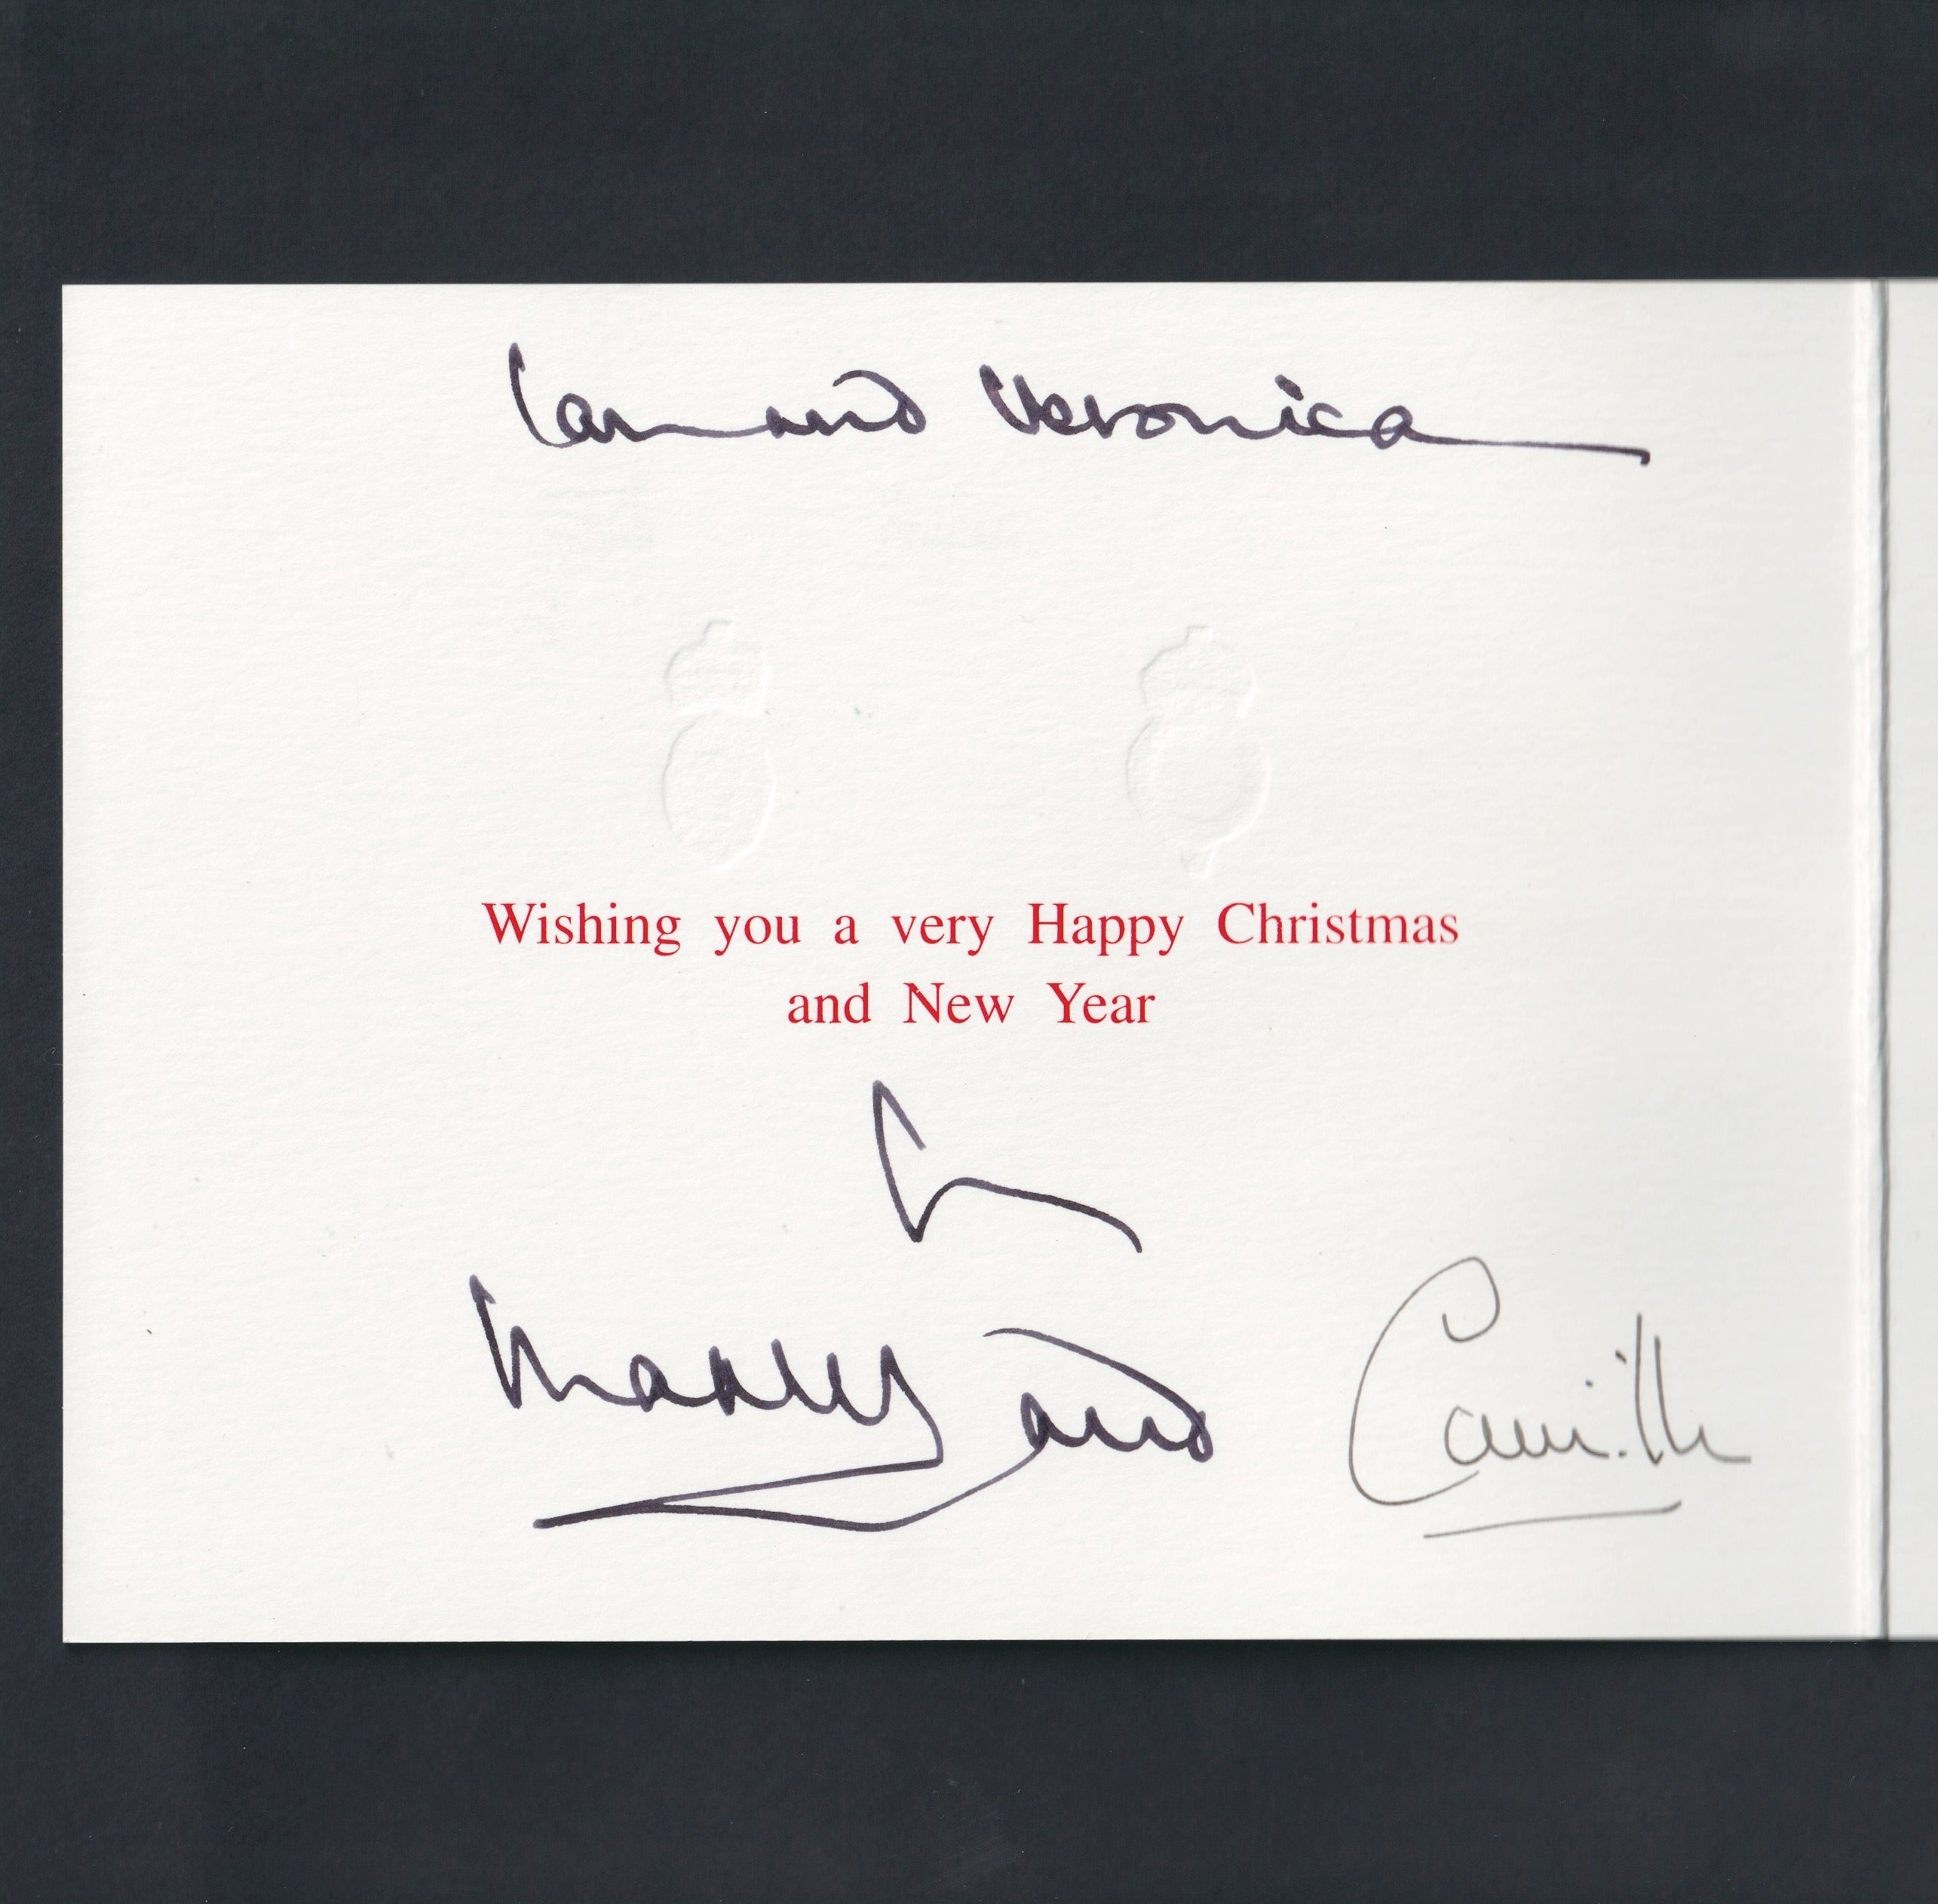 Ian and Veronica
Wishing you a very Happy Christmas
and New Year
Charles and Camilla